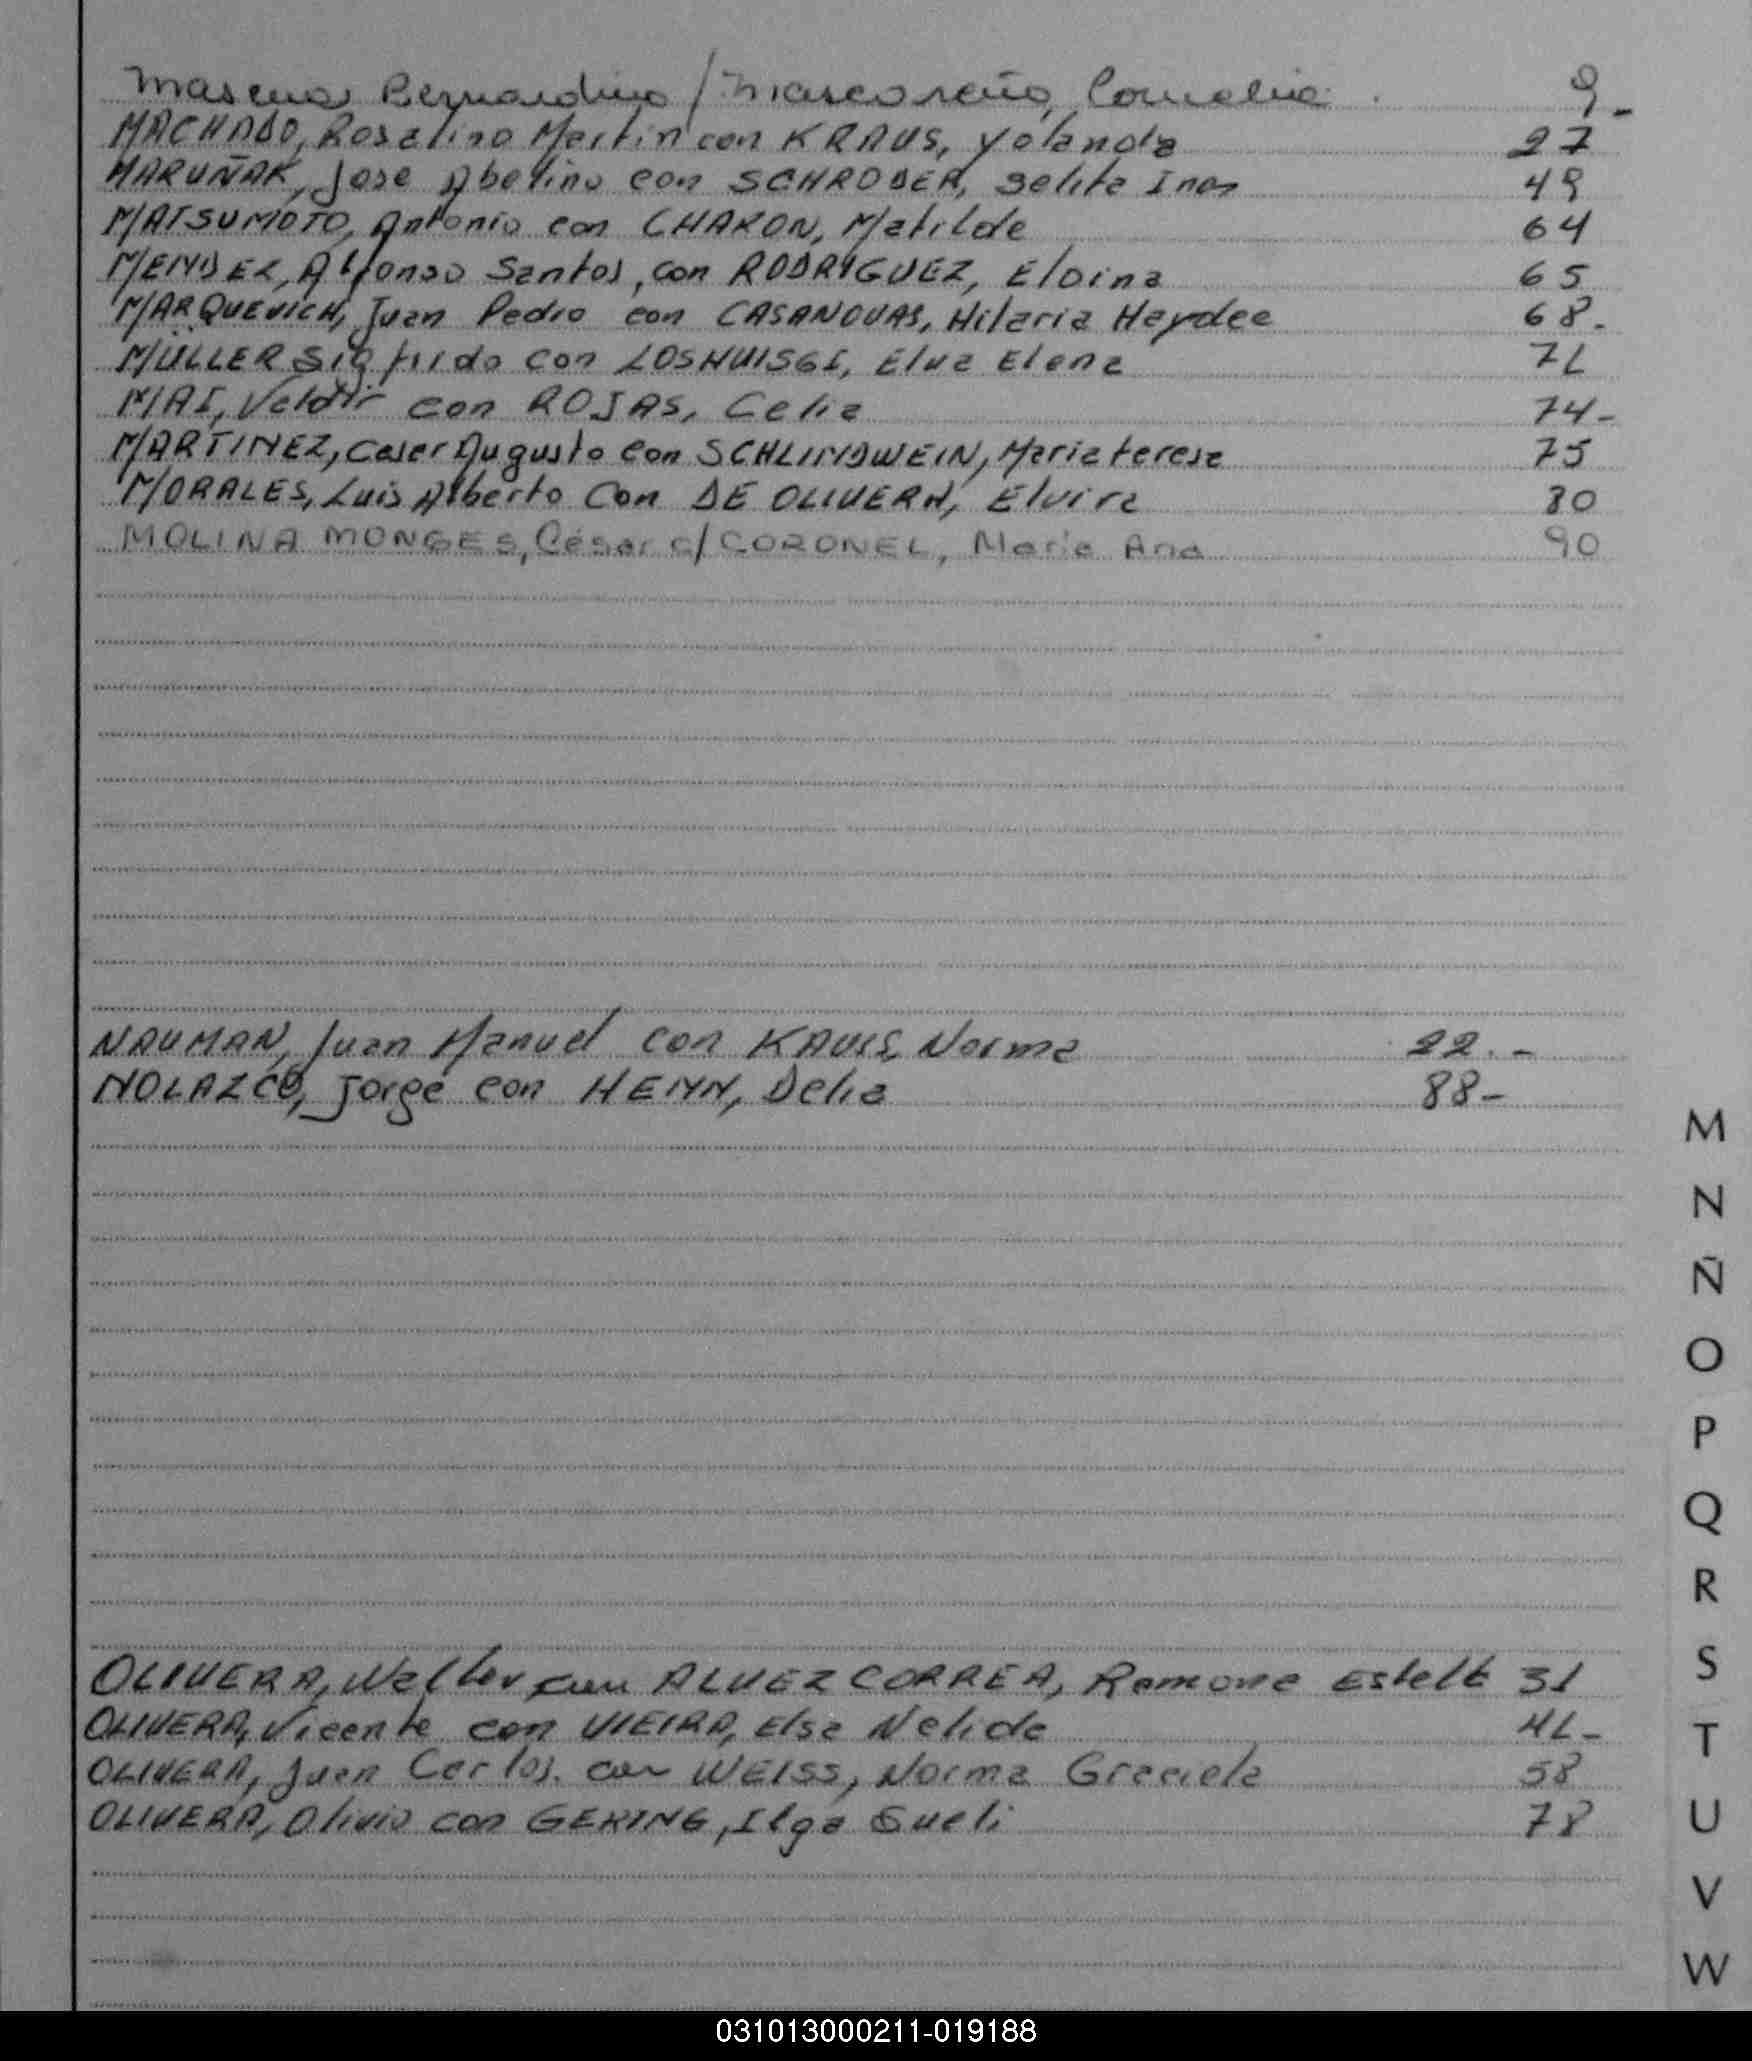 Bernardino / Mascareño,
9-
MACHADO, Rosalino Martin con KRAUS, Yolanda 27
MARUÑAK, Jose Abelino con SCHRODER, Selita Ines 49
MATSUMOTO, Antonio con CHAKON, Matilde 64
MENDEZ, Alfonso Santos, con RODRIGUEZ, Eloina 65
MARQUEVICH, Juan Pedro con CASANOVAS, Hilaria Haydee 68.
MÜLLER Sigfrido con Elva Elena 71
MAI, Valdir con ROJAS, Celia 74-
MARTINEZ, Cesar Augusto con SCHLINDWEIN, Maria teresa 75
MORALES, Luis Alberto Con DE OLIVERA, Elvira 80
MOLINA MONGES, César c/ CORONEL, Maria Ana 90
NAUMAN, Juan Manuel con Norma 22.-
NOLAZCO, Jorge con HENN, Delia 88-
M
N
Ñ
O
P
Q
R
S
T
U
V
W
OLIVERA, Walter con ALVEZ CORREA, Ramona Estela 31
OLIVERA, Vicente con VIEIRA, Elsa Nelida 41-
OLIVERA, Juan Carlos. con WEISS, Norma Graciela 58
OLIVERA, Olivio con GERING, Ilga Sueli 78
031013000211-019188